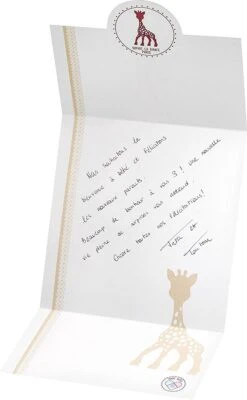 SOPHIE LA GIRAFE
PARIS
Nous souhaitons la
bienvenue à bébé et félicitons
les nouveaux parents.
Beaucoup de bonheur à vous 3 ! une nouvelle
vie pleine de surprises vous attend !
Encore toutes nos félicitations !
et